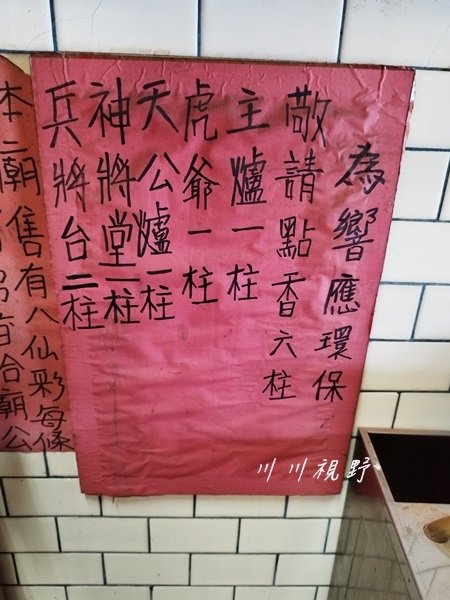 為響應環保
敬請點香六柱
主爐一柱
虎爺一柱
天公爐一柱
神將堂一柱
兵將台二柱
本廟售有八仙彩每條
廟公
川川視野